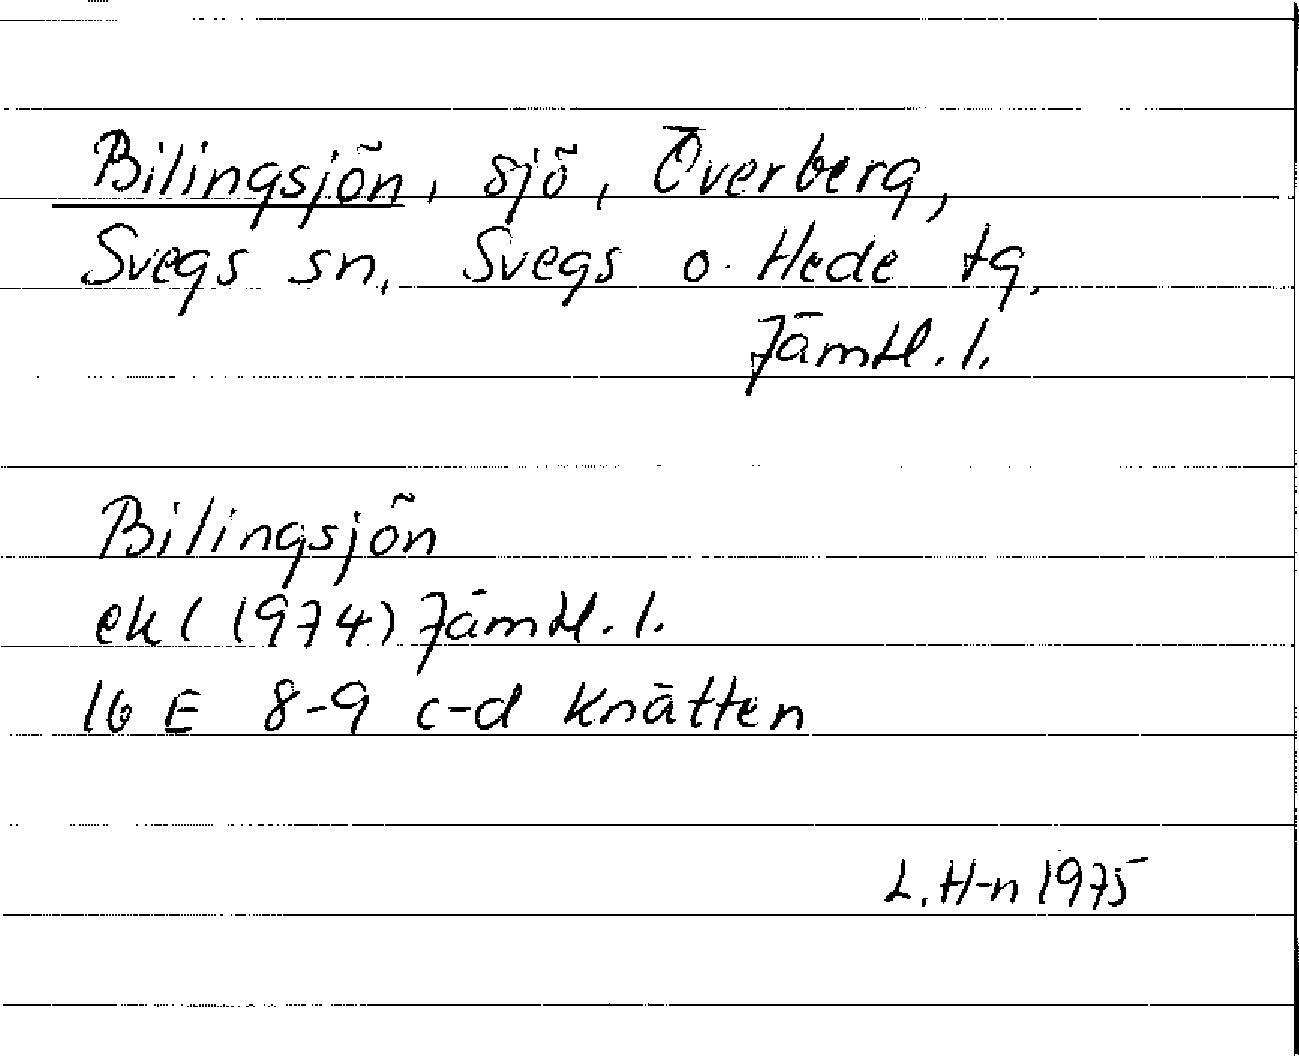 Bilingsjön, sjö, Överberg,
Svegs sn, Svegs o. Hede tg.
Jämtl. l.
Bilingsjön
ek ( (1974) Jämtl. l.
16 E 8-9 c-d Knätten
L. H-n 1975